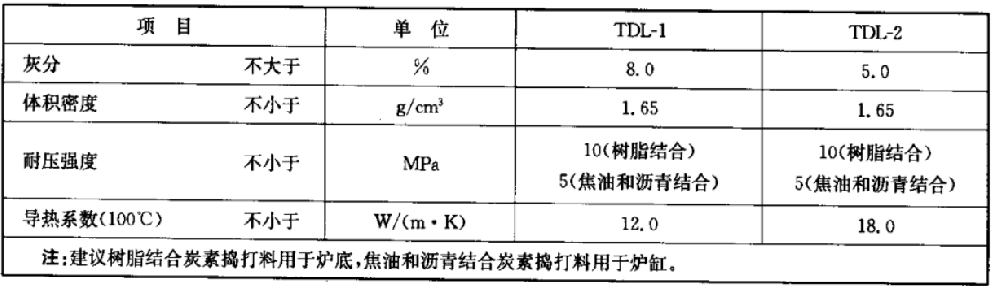 项 目 单 位 TDL-1 TDL-2
灰分 不大于 % 8.0 5.0
体积密度 不小于 g/cm³ 1.65 1.65
耐压强度 不小于 MPa 10(树脂结合) 10(树脂结合)
5(焦油和沥青结合) 5(焦油和沥青结合)
导热系数(100℃) 不小于 W/(m·K) 12.0 18.0
注:建议树脂结合炭素捣打料用于炉底,焦油和沥青结合炭素捣打料用于炉缸。